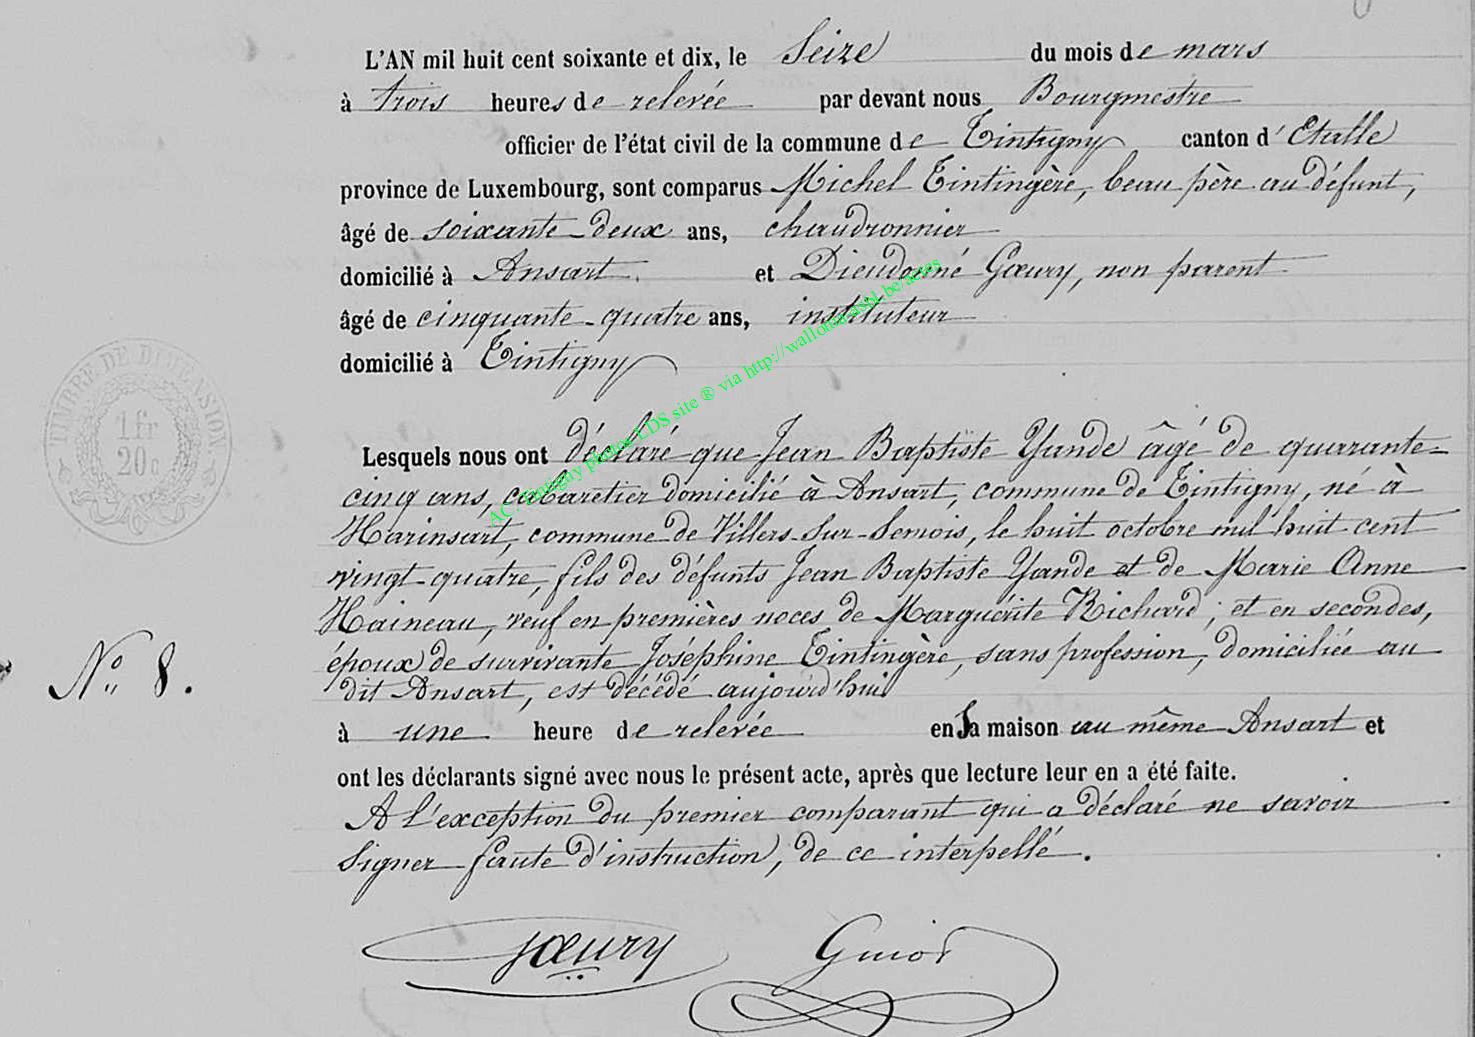 L'AN mil huit cent soixante et dix, le Seize du mois de mars
à trois heures de relevée par devant nous Bourgmestre
officier de l'état civil de la commune de Tintigny canton d'Etalle
province de Luxembourg, sont comparus Michel Tintingère, beau père au défunt,
âgé de soixante-deux ans, chaudronnier
domicilié à Ansart. et Dieudonné Gœury, non parent
âgé de cinquante-quatre ans, instituteur
domicilié à Tintigny
Lesquels nous ont déclaré que Jean Baptiste Yande âgé de quarante-
cinq ans, cabaretier domicilié à Ansart, commune de Tintigny, né à
Harinsart, commune de Villers-sur-Semois, le huit octobre mil huit cent
vingt-quatre, fils des défunts Jean Baptiste Yande et de Marie Anne
Haineau, veuf en premières noces de Marguérite Richard; et en secondes,
époux de survivante Joséphine Tintingère, sans profession, domiciliée au
dit Ansart, est décédé aujourd'hui
N° 8.
à une heure de relevée en sa maison au même Ansart et
ont les déclarants signé avec nous le présent acte, après que lecture leur en a été faite.
A l'exception du premier comparant qui a déclaré ne savoir
signer faute d'instruction, de ce interpellé.
Gœury Guiot
TIMBRE DE DIMENSION
1fr
20c
AC Tintigny photos LDS site ® via http://wallonia-asbl.be/actes